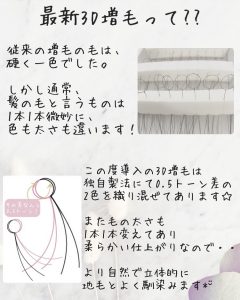 最新3D増毛って??
従来の増毛の毛は、
硬く一色でした。
しかし通常、
髪の毛と言うものは
1本1本微妙に、
色も太さも違います！
この度導入の3D増毛は
独自製法にて0.5トーン差の
2色を織り混ぜてあります☆
また毛の太さも
1本1本変えてあり
柔らかい仕上がりなので・・
より自然で立体的に
地毛とよく馴染みます